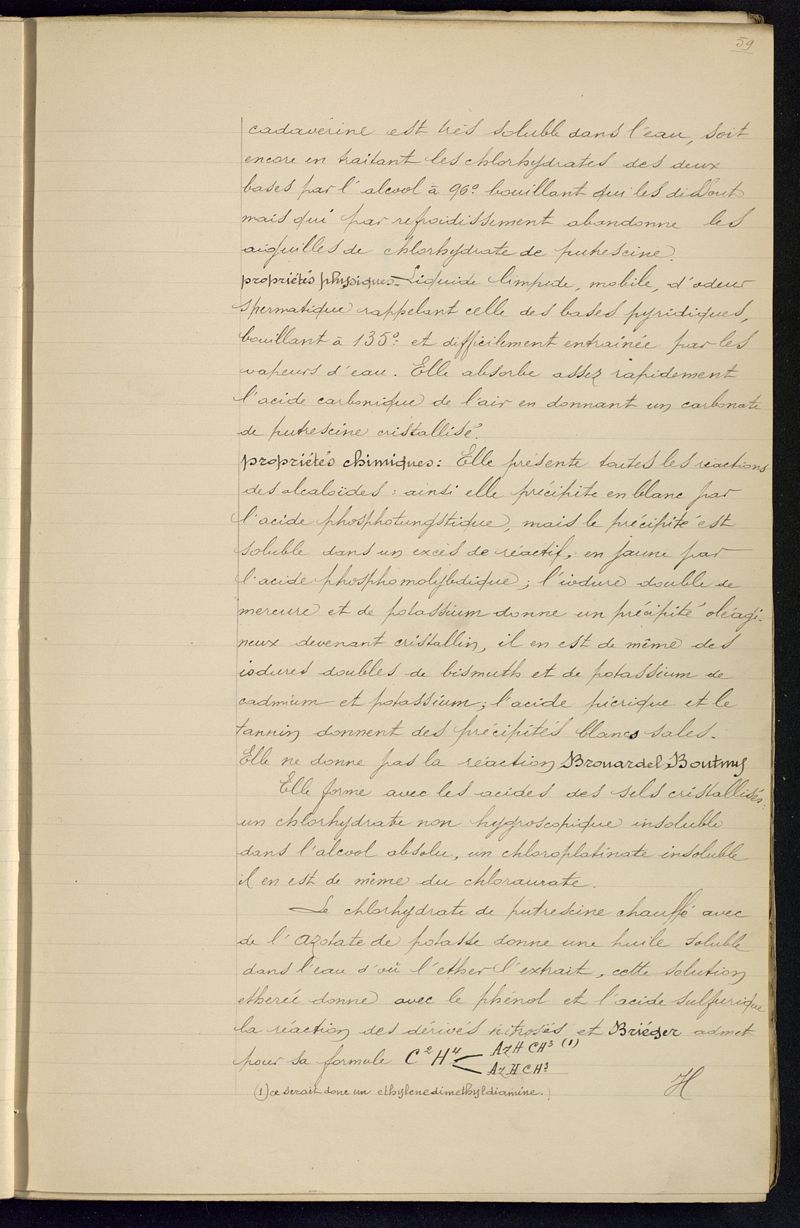 59
cadavérine est très soluble dans l'eau, soit
encore en traitant les chlorhydrates des deux
bases par l'alcool à 96° bouillant qui les dissout
mais qui par refroidissement abandonne les
aiguilles de chlorhydrate de putrescine.
propriétés physiques - Liquide limpide, mobile, d'odeur
spermatique rappelant celle des bases pyridiques,
bouillant à 135° et difficilement entrainée par les
vapeurs d'eau. Elle absorbe assez rapidement
l'acide carbonique de l'air en donnant un carbonate
de putrescine cristallisé.
propriétés chimiques: Elle présente toutes les réactions
des alcaloïdes: ainsi elle précipite en blanc par
l'acide phosphotungstique, mais le précipité est
soluble dans un excès de réactif, en jaune par
l'acide phosphomolybdique; l'iodure double de
mercure et de potassium donne un précipité oléagi-
neux devenant cristallin, il en est de même des
iodures doubles de bismuth et de potassium de
cadmium et potassium; l'acide picrique et le
tannin donnent des précipités blancs sales.
Elle ne donne pas la réaction Brouardel Boutmy
Elle forme avec les acides des sels cristallisés:
un chlorhydrate non hygroscopique insoluble
dans l'alcool absolu, un chloroplatinate insoluble
il en est de même du chloraurate.
Le chlorhydrate de putrescine chauffé avec
de l'azotate de potasse donne une huile soluble
dans l'eau d'où l'ether l'extrait, cette solution
etherée donne avec le phénol et l'acide sulfurique
la réaction des dérivés nitrosés et Briéger admet
pour sa formule C²H⁴ < AzHCH³ (1)
AzHCH³
(1) ce serait donc un ethylenedimethyldiamine.
H